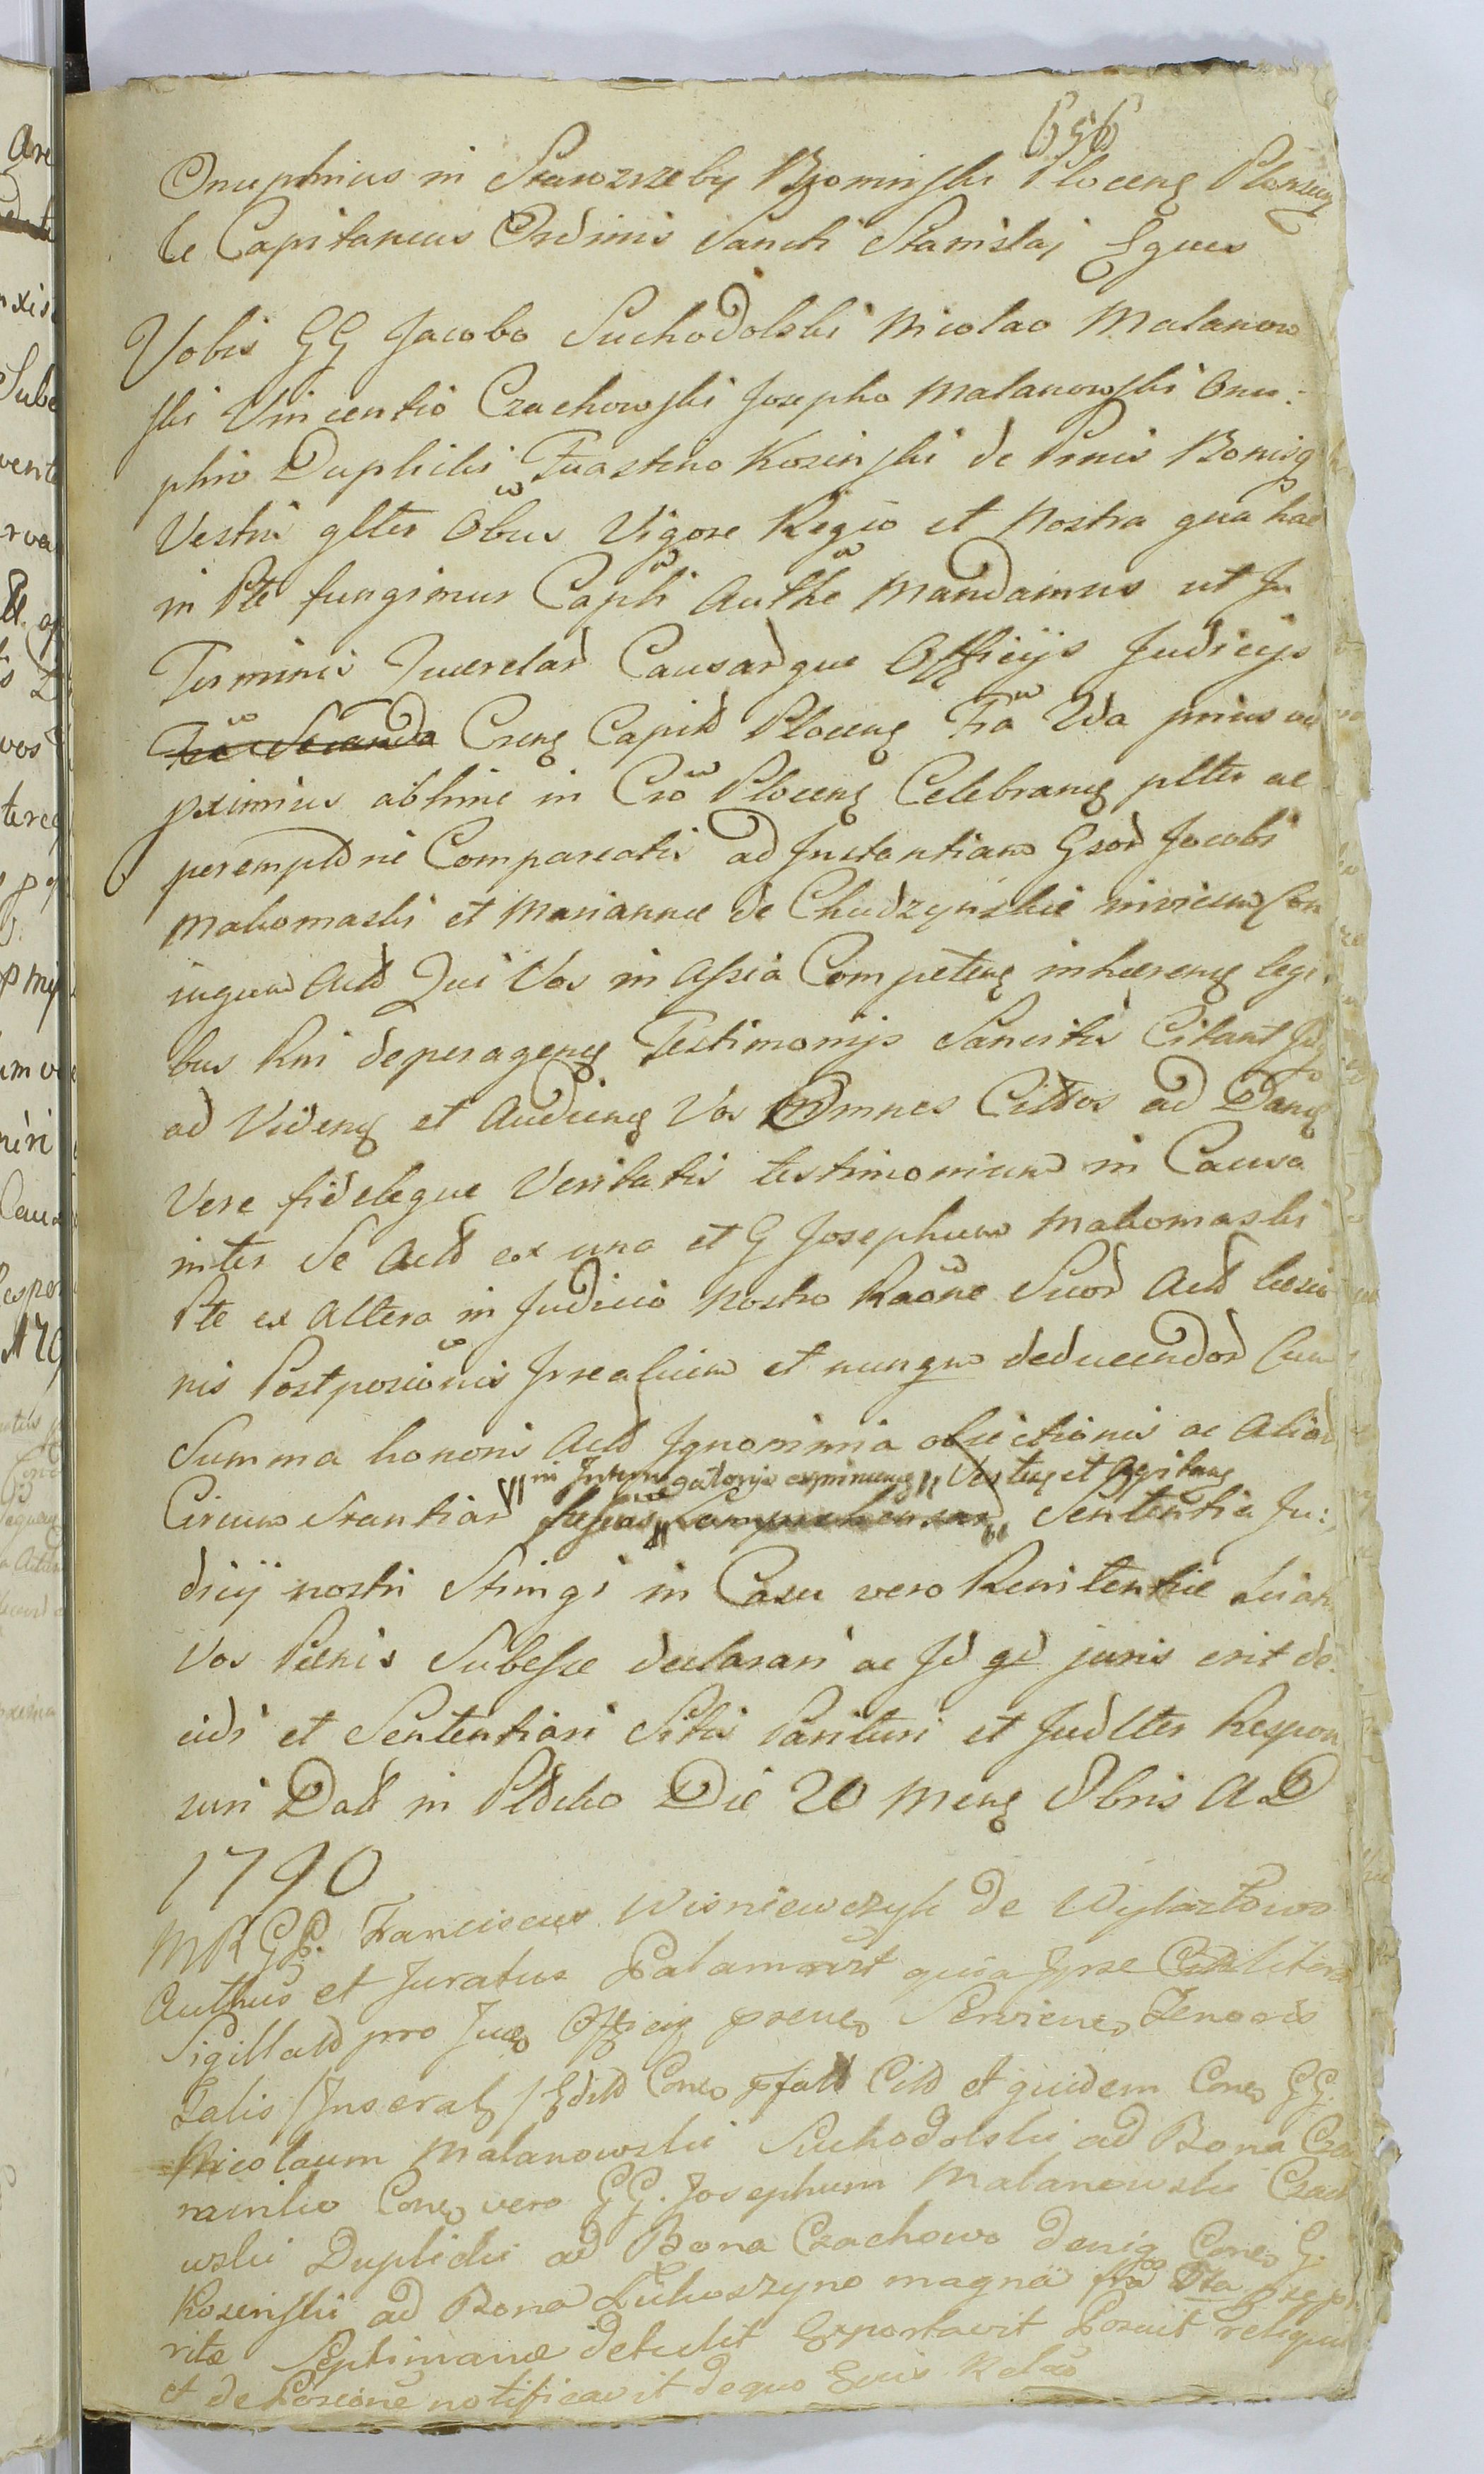 656
Onuphrius in Starozrzeby Bromirski Plocens Plonscens
le Capitaneus Ordinis Sancti Stanislaj Eques
Vobis GG Jacobo Suchodolski Nicolao Malanow
ski Vincentio Czachowski Josepho Malanowski Onu:
phrio Duplicki Faustino Kozinski de Prnis Bonisq
Vestri glter Obus Vigore Regio et Nostra qua hac
in Pte fungimur Capli Authe Mandamus ut In
Terminis Querelar Causarque Officijs Judicijs
Fra Secunda Crens Capit Plocens Fra 2da prius ac
pximius abhinc in Cro Plocens Celebrans plter ac
peremptorie Compareatis ad Instantiam Gsor Jacobi
Makomaski et Mariannæ de Chudzynskie invicem Con
iugum Act Qui Vos in Assia Competens inhærens legi
bus Rni deperagens Testimonijs Sancitis Citant
ad Videns et Audiens Vos Omnes Cittos ad Dans
Vere fideleque Veritatis testimonium in Causa
inter Se Act ex una et G Josephum Makomaski
Pte ex Altera in Judicio Nostro Raõne Suor Act læsio
nis Postposiõnis Irrealium et nunqm deducendor Cum
Summa honoris Act Ignominia obiectionis ac Aliar
in Interrogatorijs exprimens Vertens et Agitans
Circum Stantiar fusius Comprehensar Sententia Ju:
dicij nostri Stringi in Casu vero Renitentiæ
Vos Pœnis Subesse declarari ac Id qd juris erit de:
cidi et Sententiari Sitis Parituri et Judlter Respon
suri Datt in Plocko Die 20 Mens 8bris AD
1790
MRGP. Franciscus Wisniewczyk de Wylazłowo
Authus et Juratus Palam quia Ipse Litteras
Sigillatt pro Officij prens Serviens Tenoris
Talis /Inserat/ Editt Cone pfatt Citt et quidem Cone GG.
Nicolaum Malanowski Suchodolski ad Bona
Cone vero GG. Josephum Malanowski Czacho
wski Duplicki ad Bona Czachowo deniq Cone G.
Kosinski ad Bona Lukoszyno magna fra
ritæ Septimanæ detulit Exportavit Posuit reliquit
et de Posione notificavit dequo Suis Relaõ